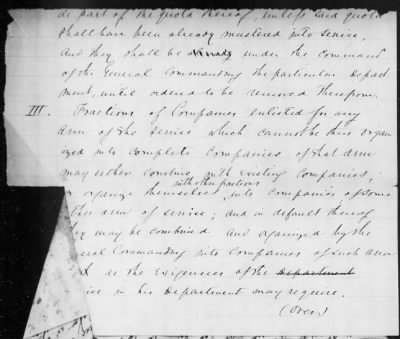 as part of the quota thereof, unless said quota
shall have been already mustered into service,
And they shall be already under the command
of the General Commanding the particular Depart
ment, until ordered to be removed therefrom.
III. Fractions of Companies enlisted for any
arm of the service which cannot be thus organ
ized into complete Companies of that arm
may either combine with existing companies,
with other fractions
organize themselves, into companies of some
ther arm of service; and in default thereof
they may be combined and organized by the
eral Commanding into Companies of such arm
as the Exigencies of the Department
ice in his Department may require.
(Over)